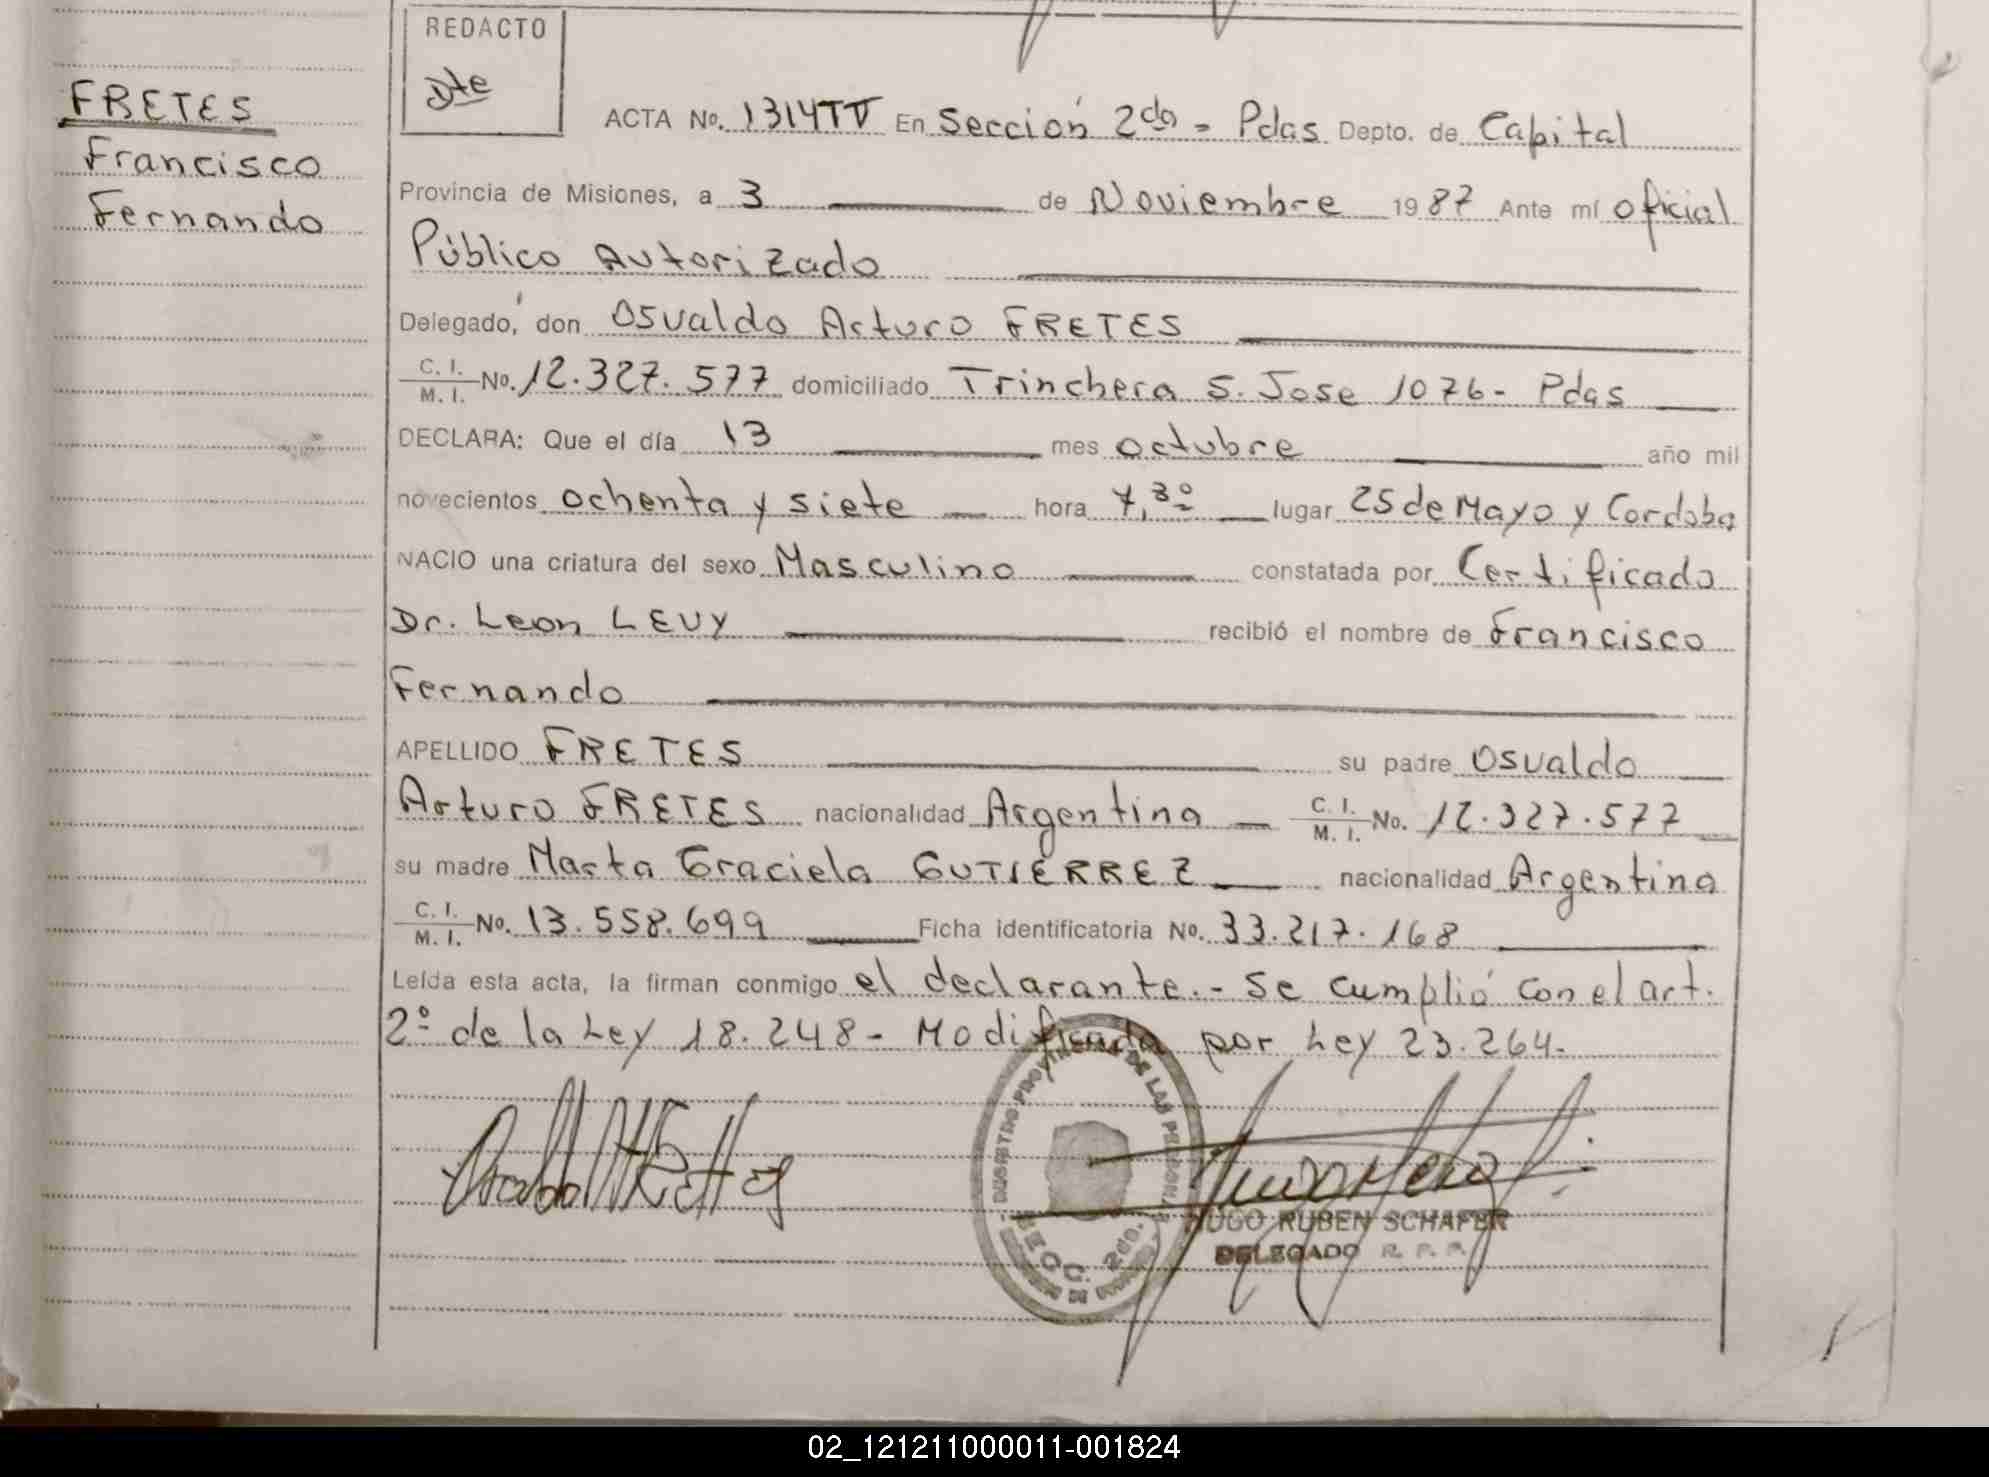 REDACTO
Dte
FRETES
Francisco
Fernando
ACTA No. 1314TIV En Sección 2da - Pdas Depto. de Capital
Provincia de Misiones, a 3 de Noviembre 1987 Ante mí oficial
Público Autorizado
Delegado, don Osvaldo Arturo FRETES
C. I. / M. I. No. 12.327.577 domiciliado Trinchera S. Jose 1076- Pdas
DECLARA: Que el día 13 mes octubre año mil
novecientos ochenta y siete hora 7,30 lugar 25 de Mayo y Cordoba
NACIO una criatura del sexo Masculino constatada por Certificado
Dr. Leon LEVY recibió el nombre de Francisco
Fernando
APELLIDO FRETES su padre Osvaldo
Arturo FRETES nacionalidad Argentina C. I. / M. I. No. 12.327.577
su madre Marta Graciela GUTIERREZ nacionalidad Argentina
C. I. / M. I. No. 13.558.699 Ficha identificatoria No. 33.217.168
Leída esta acta, la firman conmigo el declarante.- Se cumplió con el art.
2º de la Ley 18.248- Modificada por Ley 23.264.
SECC. 2da.
HUGO RUBEN SCHAFER
DELEGADO R. P. P.
02_121211000011-001824